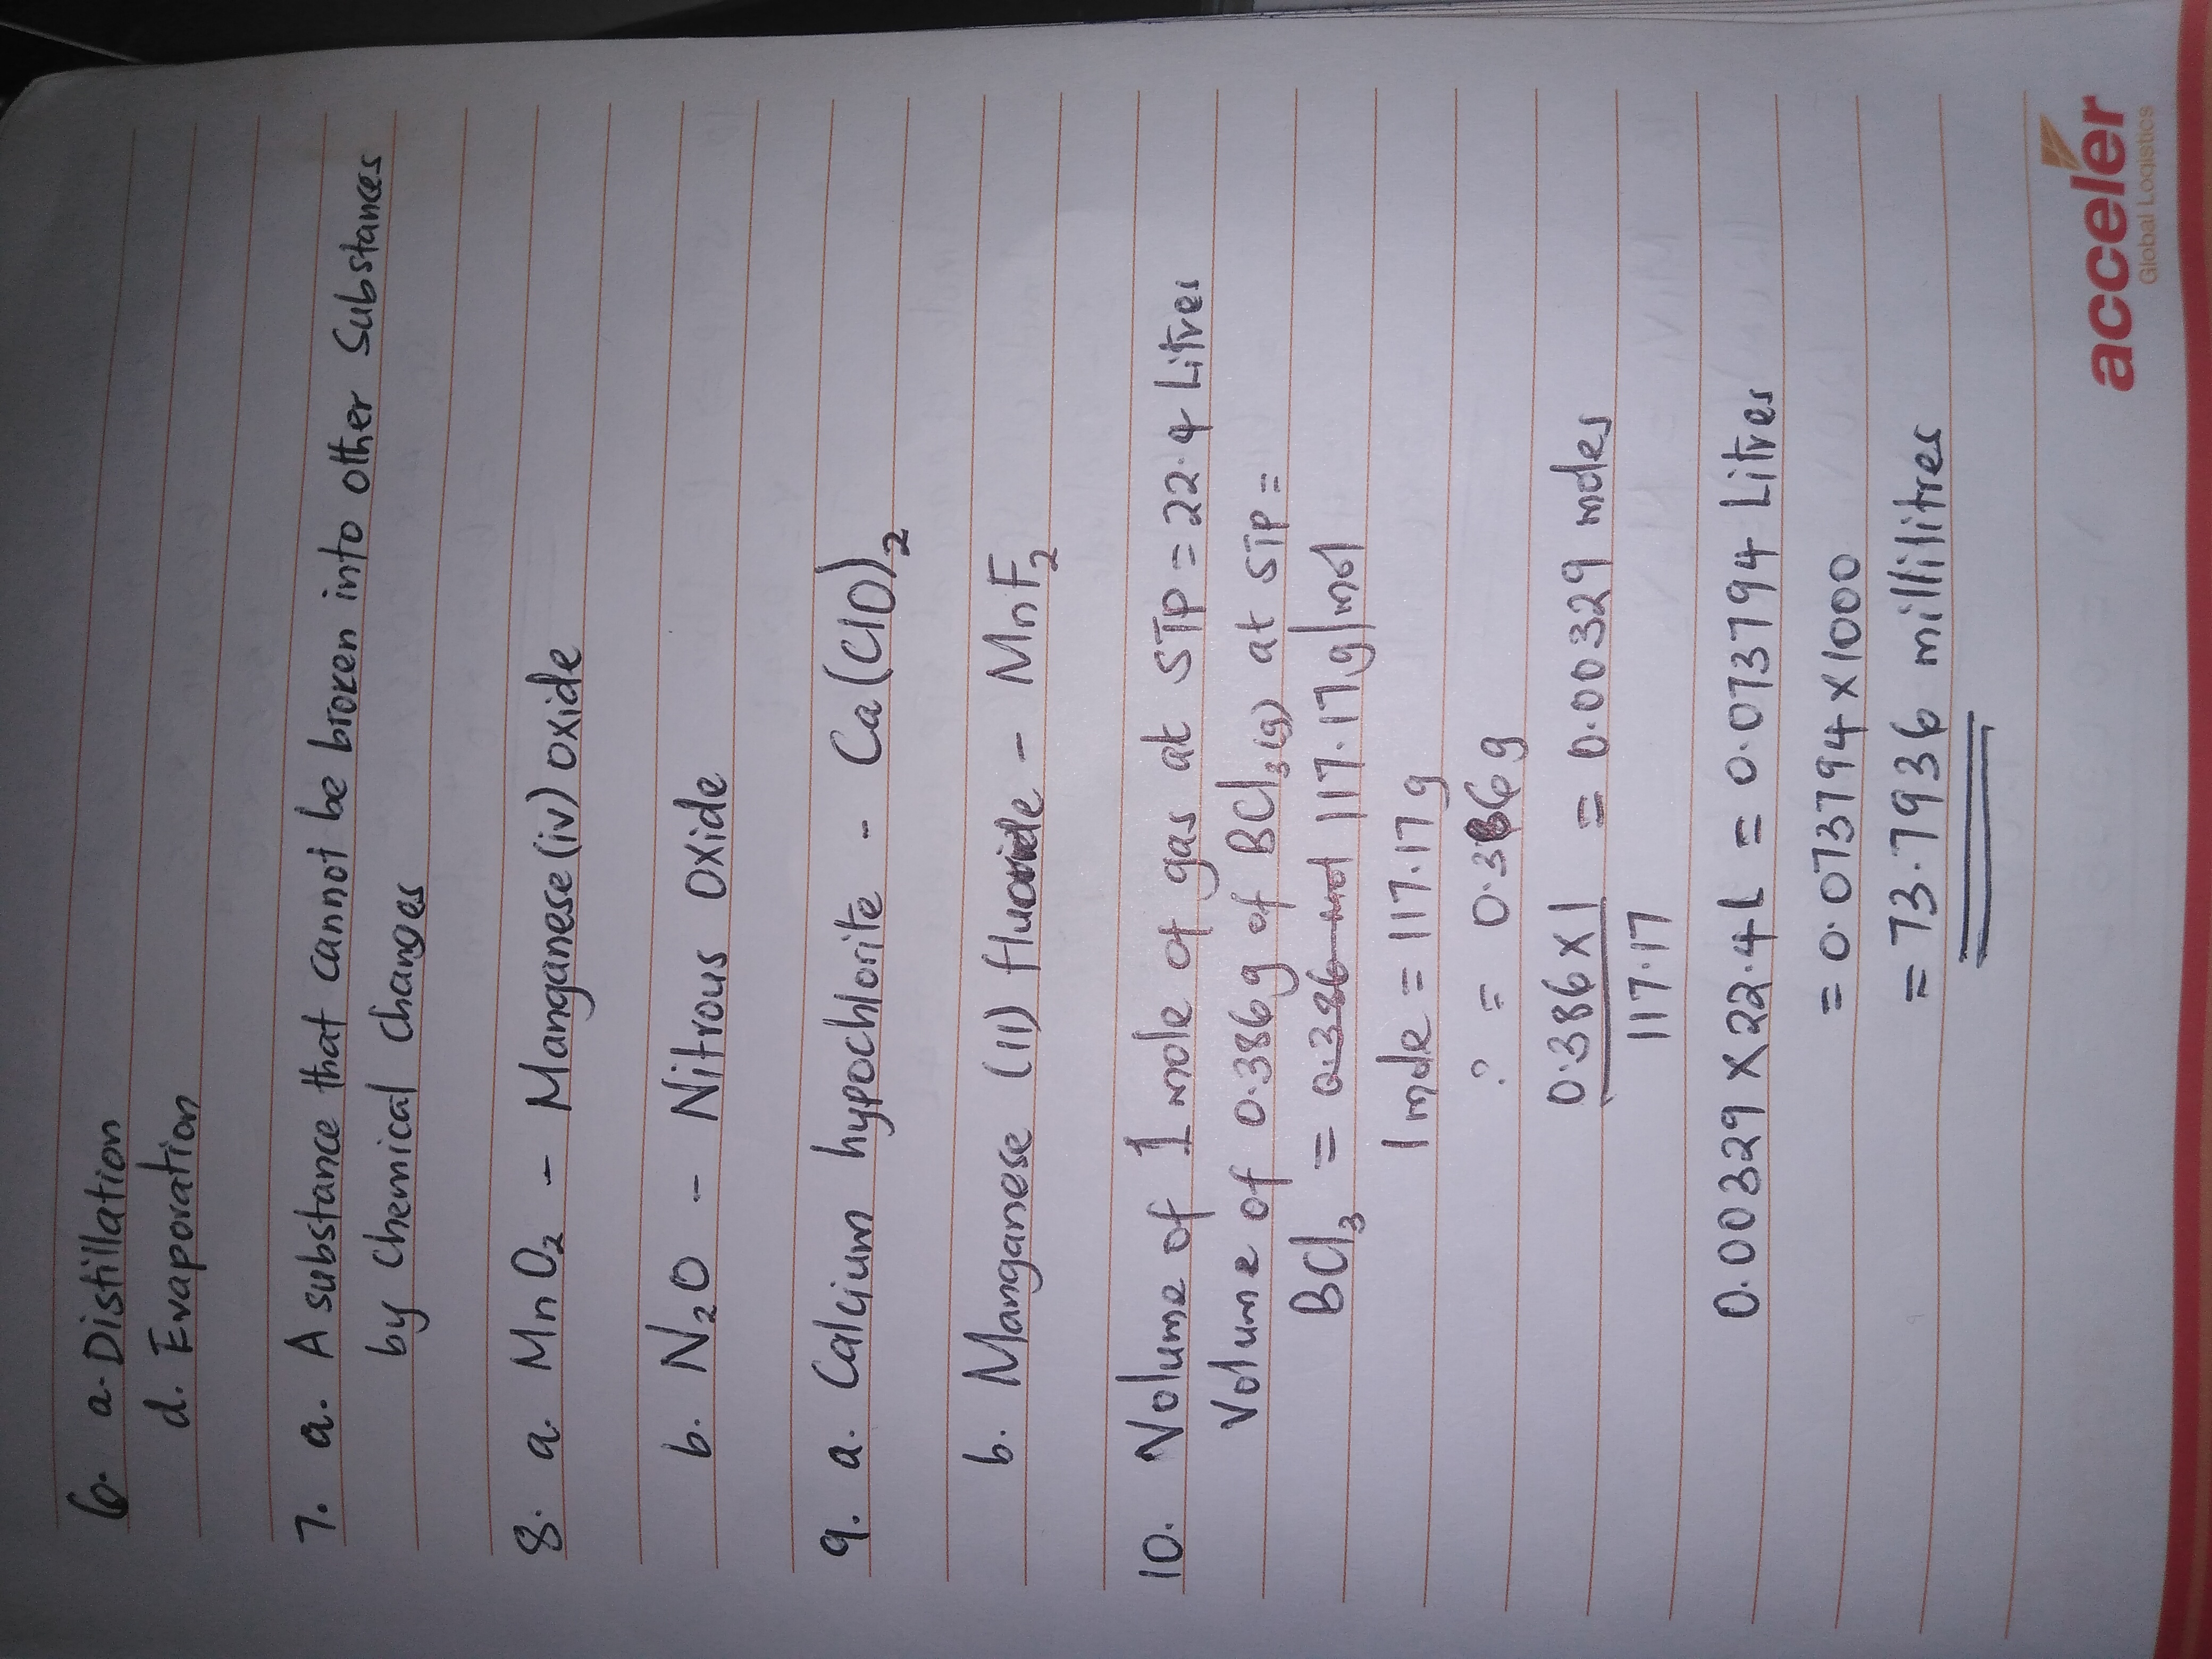 6. a. Distillation
d. Evaporation
7. a. A substance that cannot be broken into other Substances
by Chemical changes
8. a. MnO₂ - Manganese (iv) oxide
b. N₂O - Nitrous oxide
9. a. Calcium hypochlorite - Ca(ClO)₂
b. Manganese (II) fluoride - MnF₂
10. Volume of 1 mole of gas at STP = 22.4 Litres
Volume of 0.386g of BCl₃(g) at STP =
BCl₃ = 0.386 mol 117.17g/mol
1mole = 117.17g
? = 0.386g
0.386 x 1 = 0.00329 moles
117.17
0.00329 x 22.4L = 0.073794 Litres
= 0.073794 x 1000
= 73.7936 millilitres
acceler
Global Logistics